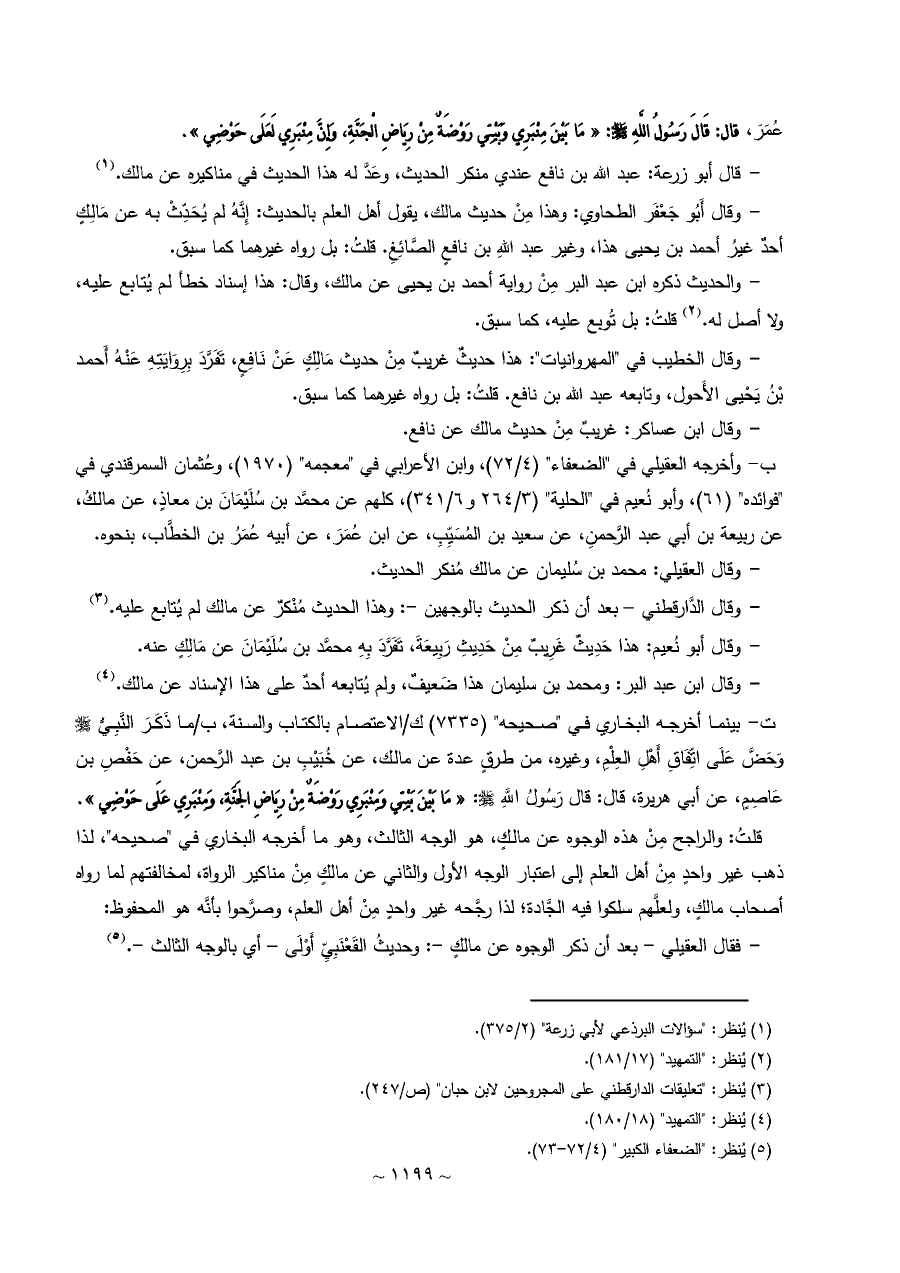 عُمَرَ، قال: قَالَ رَسُولُ اللَّهِ ﷺ: « مَا بَيْنَ مِنْبَرِي وَبَيْتِي رَوْضَةٌ مِنْ رِيَاضِ الْجَنَّةِ، وَإِنَّ مِنْبَرِي لَعَلَى حَوْضِي ».
– قال أبو زرعة: عبد الله بن نافع عندي منكر الحديث، وعَدَّ له هذا الحديث في مناكيره عن مالك.(١)
– وقال أَبُو جَعْفَر الطحاوي: وهذا مِنْ حديث مالك، يقول أهل العلم بالحديث: إِنَّهُ لم يُحَدِّثْ به عن مَالِكٍ
أحدٌ غيرُ أحمد بن يحيى هذا، وغير عبد اللهِ بن نافعٍ الصَّائِغِ. قلتُ: بل رواه غيرهما كما سبق.
– والحديث ذكره ابن عبد البر مِنْ رواية أحمد بن يحيى عن مالك، وقال: هذا إسناد خطأ لم يُتابع عليه،
ولا أصل له.(٢) قلتُ: بل تُوبع عليه، كما سبق.
– وقال الخطيب في "المهروانيات": هذا حديثٌ غريبٌ مِنْ حديث مَالِكٍ عَنْ نَافِعٍ، تَفَرَّدَ بِرِوَايَتِهِ عَنْهُ أَحمد
بْنُ يَحْيى الأَحول، وتابعه عبد الله بن نافع. قلتُ: بل رواه غيرهما كما سبق.
– وقال ابن عساكر: غريبٌ مِنْ حديث مالك عن نافع.
ب– وأخرجه العقيلي في "الضعفاء" (٧٢/٤)، وابن الأعرابي في "معجمه" (١٩٧٠)، وعُثمان السمرقندي في
"فوائده" (٦١)، وأبو نُعيم في "الحلية" (٢٦٤/٣ و ٣٤١/٦)، كلهم عن محمَّد بن سُلَيْمَانَ بن معاذٍ، عن مالكُ،
عن ربيعة بن أبي عبد الرَّحمنِ، عن سعيد بن المُسَيِّبِ، عن ابن عُمَرَ، عن أبيه عُمَرُ بن الخطَّاب، بنحوه.
– وقال العقيلي: محمد بن سُليمان عن مالك مُنكر الحديث.
– وقال الدَّارقطني – بعد أن ذكر الحديث بالوجهين –: وهذا الحديث مُنْكرٌ عن مالك لم يُتابع عليه.(٣)
– وقال أبو نُعيم: هذا حَدِيثٌ غَرِيبٌ مِنْ حَدِيثِ رَبِيعَةَ، تَفَرَّدَ بِهِ محمَّد بن سُلَيْمَانَ عن مَالِكٍ عنه.
– وقال ابن عبد البر: ومحمد بن سليمان هذا ضَعيفٌ، ولم يُتابعه أحدٌ على هذا الإسناد عن مالك.(٤)
ت– بينما أخرجه البخاري في "صحيحه" (٧٣٣٥) ك/الاعتصام بالكتاب والسنة، ب/ما ذَكَرَ النَّبِيُّ ﷺ
وَحَضَّ عَلَى اتِّفَاقِ أَهْلِ العِلْمِ، وغيره، من طرقٍ عدة عن مالك، عن خُبَيْبِ بن عبد الرَّحمن، عن حَفْصِ بن
عَاصِمٍ، عن أبي هريرة، قال: قال رَسُولُ اللَّهِ ﷺ: « مَا بَيْنَ بَيْتِي وَمِنْبَرِي رَوْضَةٌ مِنْ رِيَاضِ الجَنَّةِ، وَمِنْبَرِي عَلَى حَوْضِي ».
قلتُ: والراجح مِنْ هذه الوجوه عن مالكٍ، هو الوجه الثالث، وهو ما أخرجه البخاري في "صحيحه"، لذا
ذهب غير واحدٍ مِنْ أهل العلم إلى اعتبار الوجه الأول والثاني عن مالكٍ مِنْ مناكير الرواة، لمخالفتهم لما رواه
أصحاب مالكٍ، ولعلَّهم سلكوا فيه الجَّادة؛ لذا رجَّحه غير واحدٍ مِنْ أهل العلم، وصرَّحوا بأنَّه هو المحفوظ:
– فقال العقيلي – بعد أن ذكر الوجوه عن مالكٍ –: وحديثُ القَعْنَبِيِّ أَوْلَى – أي بالوجه الثالث –.(٥)
(١) يُنظر: "سؤالات البرذعي لأبي زرعة" (٣٧٥/٢).
(٢) يُنظر: "التمهيد" (١٨١/١٧).
(٣) يُنظر: "تعليقات الدارقطني على المجروحين لابن حبان" (ص/٢٤٧).
(٤) يُنظر: "التمهيد" (١٨٠/١٨).
(٥) يُنظر: "الضعفاء الكبير" (٧٢/٤–٧٣).
~ ١١٩٩ ~